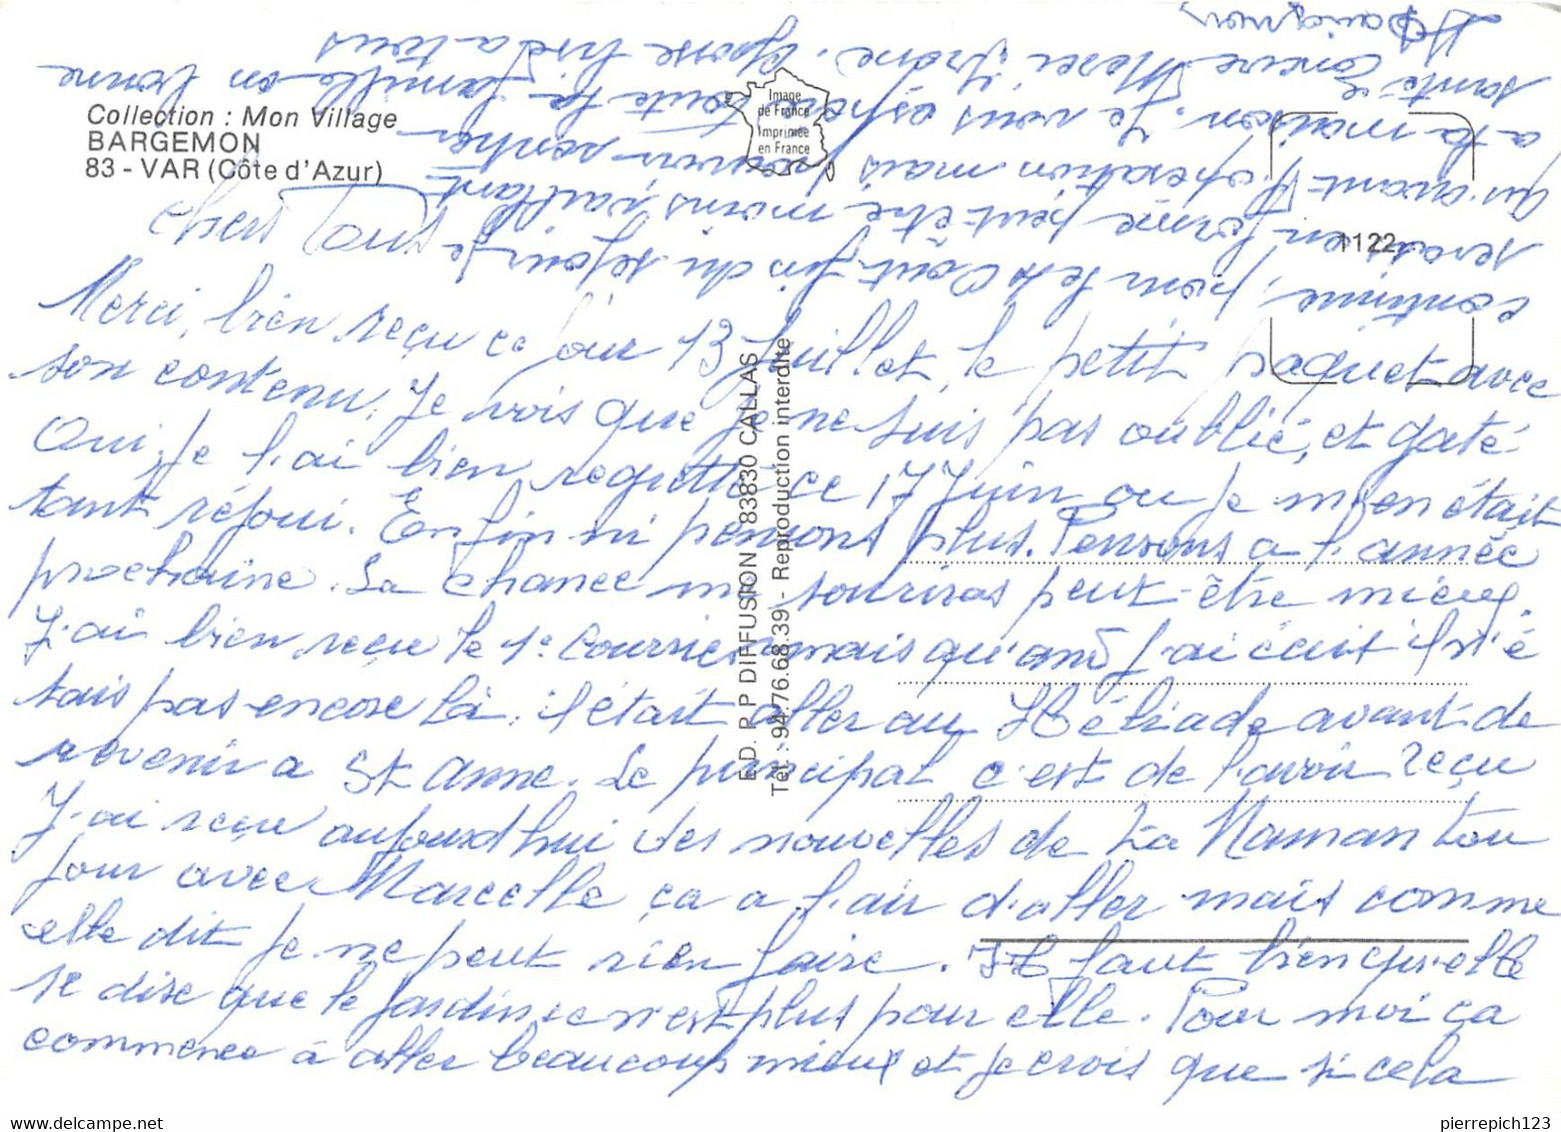 Collection : Mon Village
BARGEMON
83 - VAR (Côte d'Azur)
Image
de France
Imprimée
en France
1122
ED. P. P DIFFUSION 83830 CALLAS
Tél. : 94.76.68.39 - Reproduction interdite
chers Tous
Merci, bien reçu ce jour 13 Juillet, le petit paquet avec
son contenu. Je vois que je ne suis pas oublié, et gaté
Oui, je l'ai bien regretté ce 17 Juin ou je m'en était
tant réjoui. Enfin ni pensons plus. Pensons a l'année
prochaine. La chance me souriras peut-être mieux.
J'ai bien reçu le 1e Courrier mais qu'and j'ai écrit il n'é
tais pas encore là, il était aller au Héliade avant de
revenir a St Anne. Le principal c'est de l'avoir reçu
J'ai reçu aujourd'hui des nouvelles de La Maman tou
jour avec Marcelle ça a l'air d'aller mais comme
elle dit je ne peut rien faire. Il faut bien qu'elle
se dise que le jardin ce n'est plus pour elle. Pour moi ça
commence à aller beaucoup mieux et je crois que si cela
continue, pour le Août fin du séjour je
serai en forme peut être moins vaillant
qu'avant l'opération mais pouvoir rentrer
a la maison. Je vous espère toute la famille en bonne
santé. Encore Merci Grosse bise a tous
pierrepich123